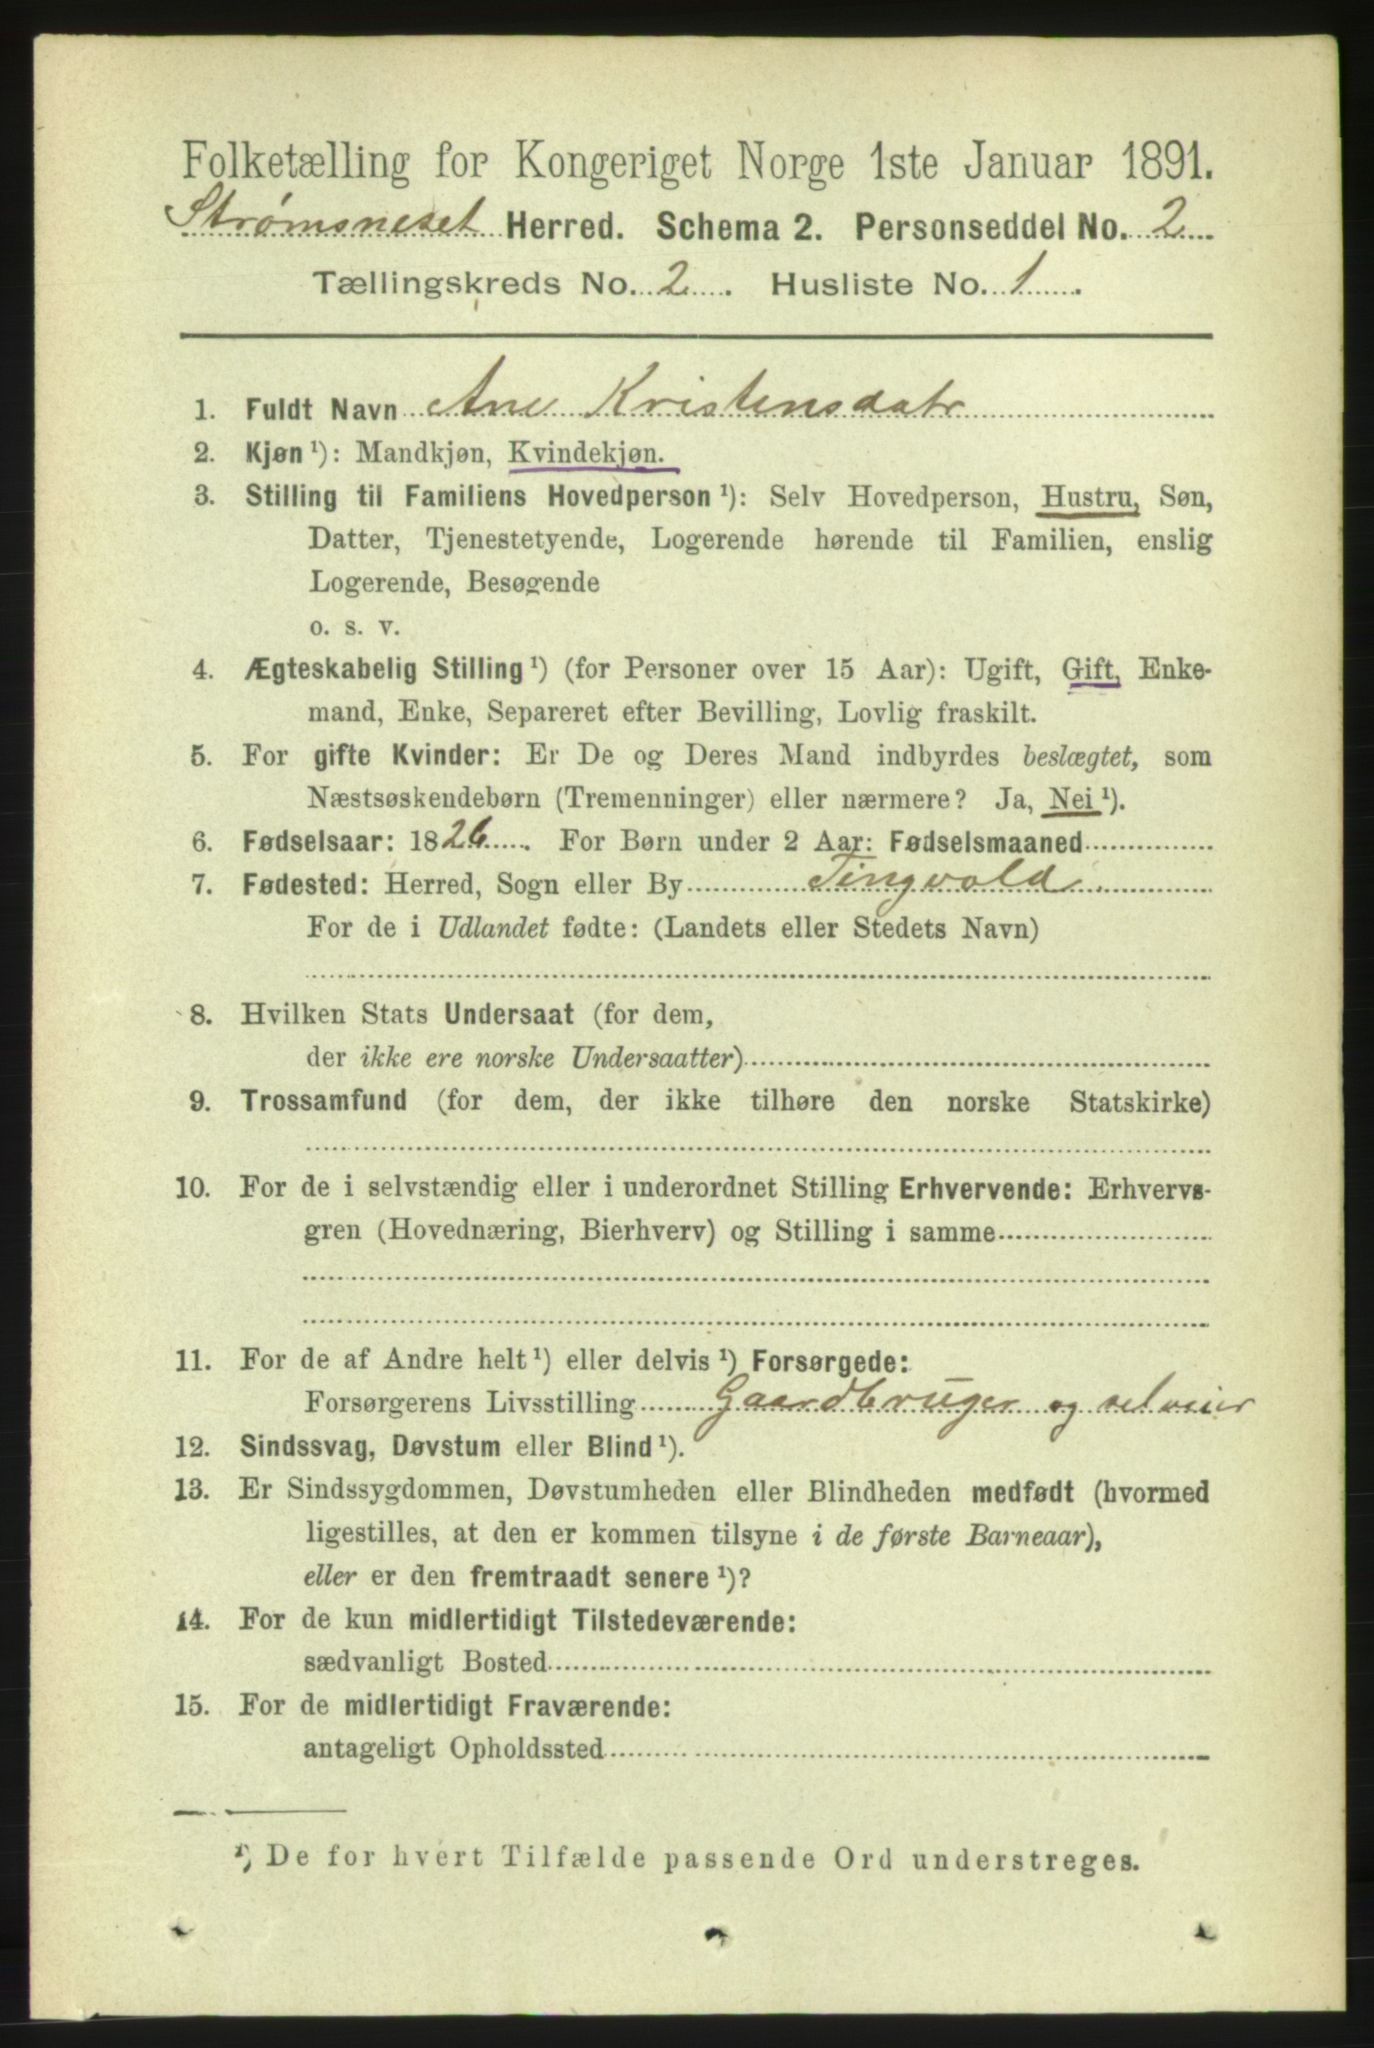 Folketælling for Kongeriget Norge 1ste Januar 1891.
Strømsneset Herred. Schema 2. Personseddel No. 2
Tællingskreds No. 2. Husliste No. 1.
1. Fuldt Navn Ane Kristensdatr
2. Kjøn ¹): Mandkjøn, Kvindekjøn.
3. Stilling til Familiens Hovedperson ¹): Selv Hovedperson, Hustru, Søn,
Datter, Tjenestetyende, Logerende hørende til Familien, enslig
Logerende, Besøgende
o. s. v.
4. Ægteskabelig Stilling ¹) (for Personer over 15 Aar): Ugift, Gift, Enke-
mand, Enke, Separeret efter Bevilling, Lovlig fraskilt.
5. For gifte Kvinder: Er De og Deres Mand indbyrdes beslægtet, som
Næstsøskendebørn (Tremenninger) eller nærmere? Ja, Nei ¹).
6. Fødselsaar: 1826. For Børn under 2 Aar: Fødselsmaaned
7. Fødested: Herred, Sogn eller By Tingvold
For de i Udlandet fødte: (Landets eller Stedets Navn)
8. Hvilken Stats Undersaat (for dem,
der ikke ere norske Undersaatter)
9. Trossamfund (for dem, der ikke tilhøre den norske Statskirke)
10. For de i selvstændig eller i underordnet Stilling Erhvervende: Erhvervs-
gren (Hovednæring, Bierhverv) og Stilling i samme
11. For de af Andre helt ¹) eller delvis ¹) Forsørgede:
Forsørgerens Livsstilling Gaardbruger og selveier
12. Sindssvag, Døvstum eller Blind ¹).
13. Er Sindssygdommen, Døvstumheden eller Blindheden medfødt (hvormed
ligestilles, at den er kommen tilsyne i de første Barneaar),
eller er den fremtraadt senere ¹)?
14. For de kun midlertidigt Tilstedeværende:
sædvanligt Bosted
15. For de midlertidigt Fraværende:
antageligt Opholdssted
¹) De for hvert Tilfælde passende Ord understreges.